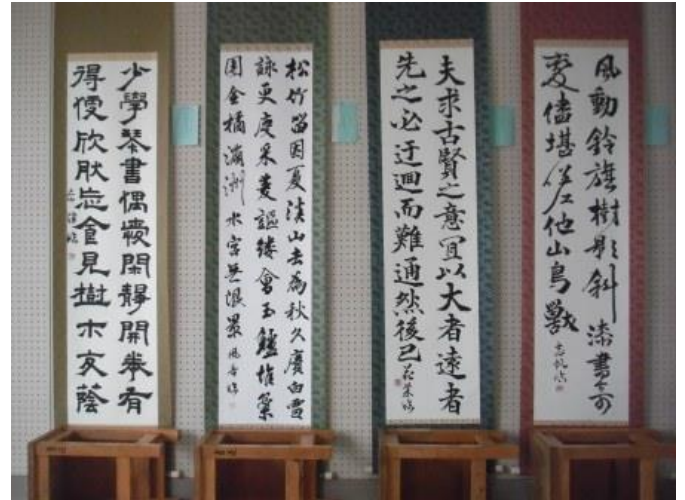 風動鈴旗樹影斜漆書
堪他山鳥獸
夫求古賢之意宜以大者遠者
先之必迂迴而難通然後已
松竹留因夏溪山去為秋久賡白雪
詠更度采菱謳縷會玉鱸堆案
團金橘滿洲水宮無限景
少學琴書偶愛閑靜開卷有
得便欣然忘食見樹木交蔭